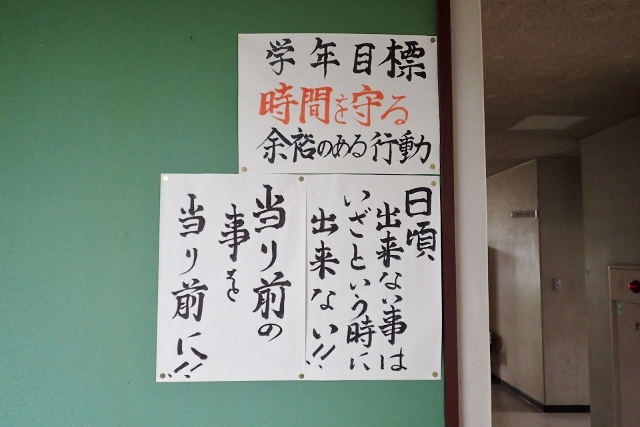 学年目標
時間を守る
余裕のある行動
日頃
出来ない事は
いざという時に
出来ない!!
当り前の
事を
当り前に!!